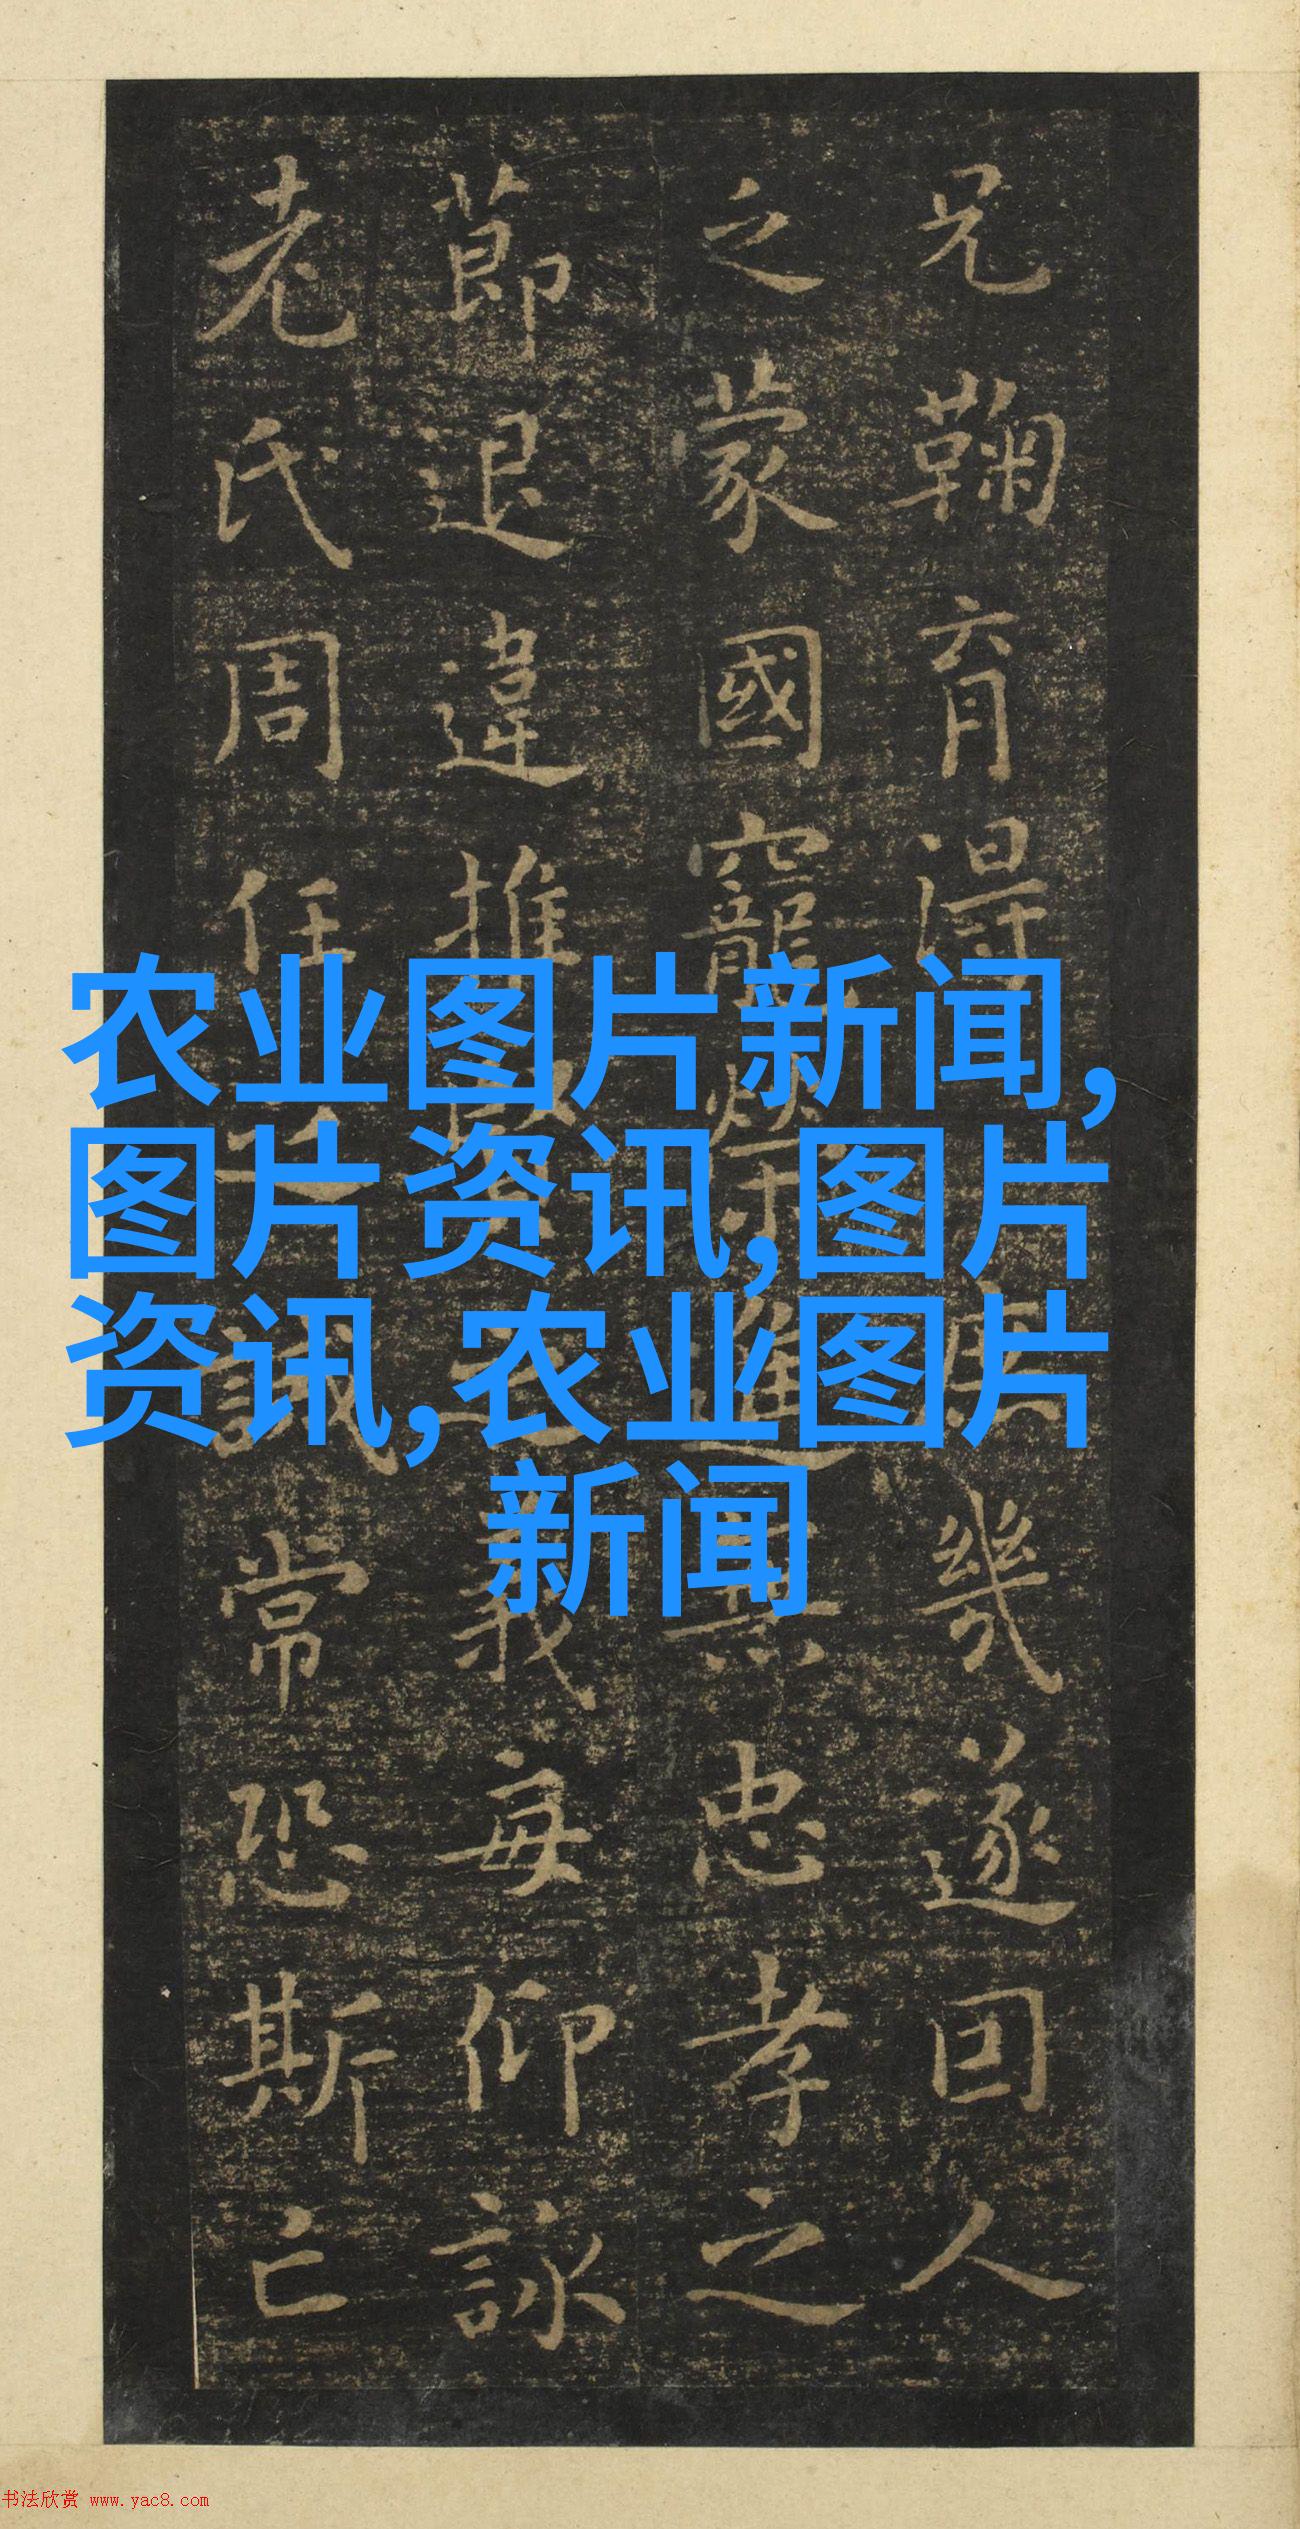 兄鞠育得庶幾遂因人
之蒙國寵榮進無忠孝之
節退違推賢之義每仰詠
老氏周任之誡常恐斯亡
农业图片新闻,
图片资讯,图片
资讯,农业图片
新闻
书法欣赏 www.yac8.com